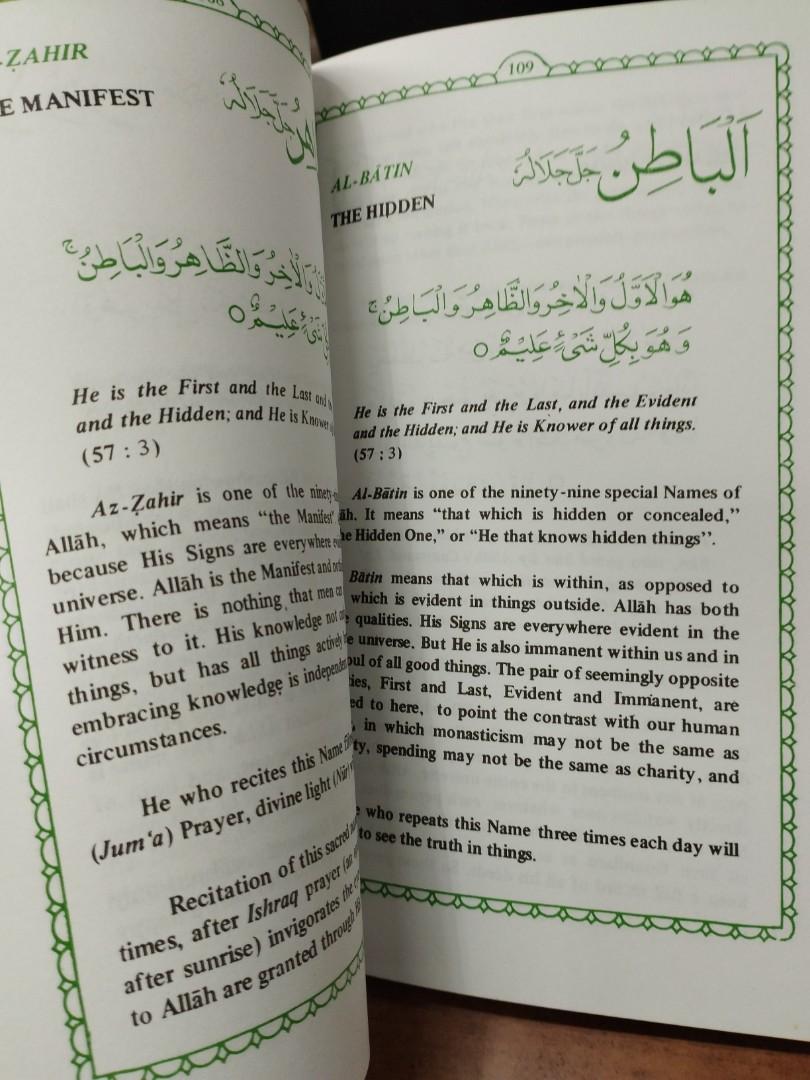 -ẒAHIR
E MANIFEST
جَلَّ جَلَالُهٗ
وَالْاٰخِرُ وَالظَّاهِرُ وَالْبَاطِنُ ۚ
شَیْءٍ عَلِيْمٌ ○
He is the First and the Last and
and the Hidden; and He is Knower
(57 : 3)
Az-Ẓahir is one of the ninety-
Allāh, which means "the Manifest"
because His Signs are everywhere
universe. Allāh is the Manifest and
Him. There is nothing that men
witness to it. His knowledge not
things, but has all things actively
embracing knowledge is independent
circumstances.
He who recites this Name
(Jum‘a) Prayer, divine light (Nūr)
Recitation of this sacred
times, after Ishraq prayer (an
after sunrise) invigorates the
to Allāh are granted through
109
اَلْبَاطِنُ جَلَّ جَلَالُهٗ
AL-BÁTIN
THE HIDDEN
هُوَ الْاَوَّلُ وَالْاٰخِرُ وَالظَّاهِرُ وَالْبَاطِنُ ۚ
وَ هُوَ بِكُلِّ شَیْءٍ عَلِيْمٌ ○
He is the First and the Last, and the Evident
and the Hidden; and He is Knower of all things.
(57 : 3)
Al-Bātin is one of the ninety-nine special Names of
āh. It means “that which is hidden or concealed,”
he Hidden One,” or “He that knows hidden things”.
Bātin means that which is within, as opposed to
which is evident in things outside. Allāh has both
e qualities. His Signs are everywhere evident in the
e universe. But He is also immanent within us and in
oul of all good things. The pair of seemingly opposite
ies, First and Last, Evident and Immanent, are
ed to here, to point the contrast with our human
, in which monasticism may not be the same as
ty, spending may not be the same as charity, and
e who repeats this Name three times each day will
to see the truth in things.